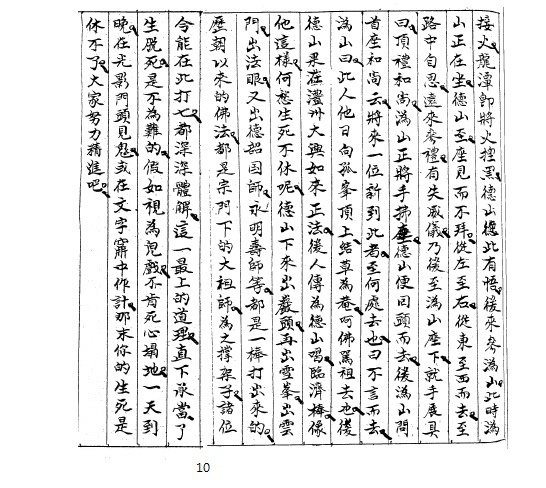 接火龍潭即將火撲黑德山從此有悟後來參溈山此時溈
山正在坐德山至座見而不拜從左至右從東至西而去至
路中自思遠來參禮有失威儀乃後至溈山座下就手展具
曰頂禮和尚溈山正將手拂塵德山便回頭而去後溈山問
首座和尚云將來一位新到此者至何處去也曰不言而去
溈山曰此人他日向孤峯頂上結草為庵呵佛罵祖去也後
德山果在澧州大興如來正法後人傳為德山喝臨濟棒像
他這樣何愁生死不休呢德山下來出巖頭再出雪峯出雲
門出法眼又出德韶國師永明壽師等都是一棒打出來的
歷朝以來的佛法都是宗門下的大祖師為之撐架子諸位
今能在此打七都深深體解這一最上的道理直下承當了
生脫死是不為難的假如視為兒戲不肯死心塌地一天到
晚在光影門頭見鬼或在文字窟中作計那末你的生死是
休不了大家努力精進吧
10